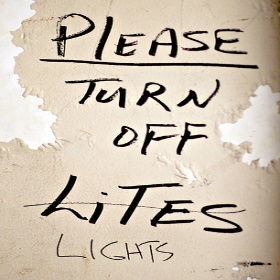 PLEASE
TURN
OFF
LiTES
LIGHTS